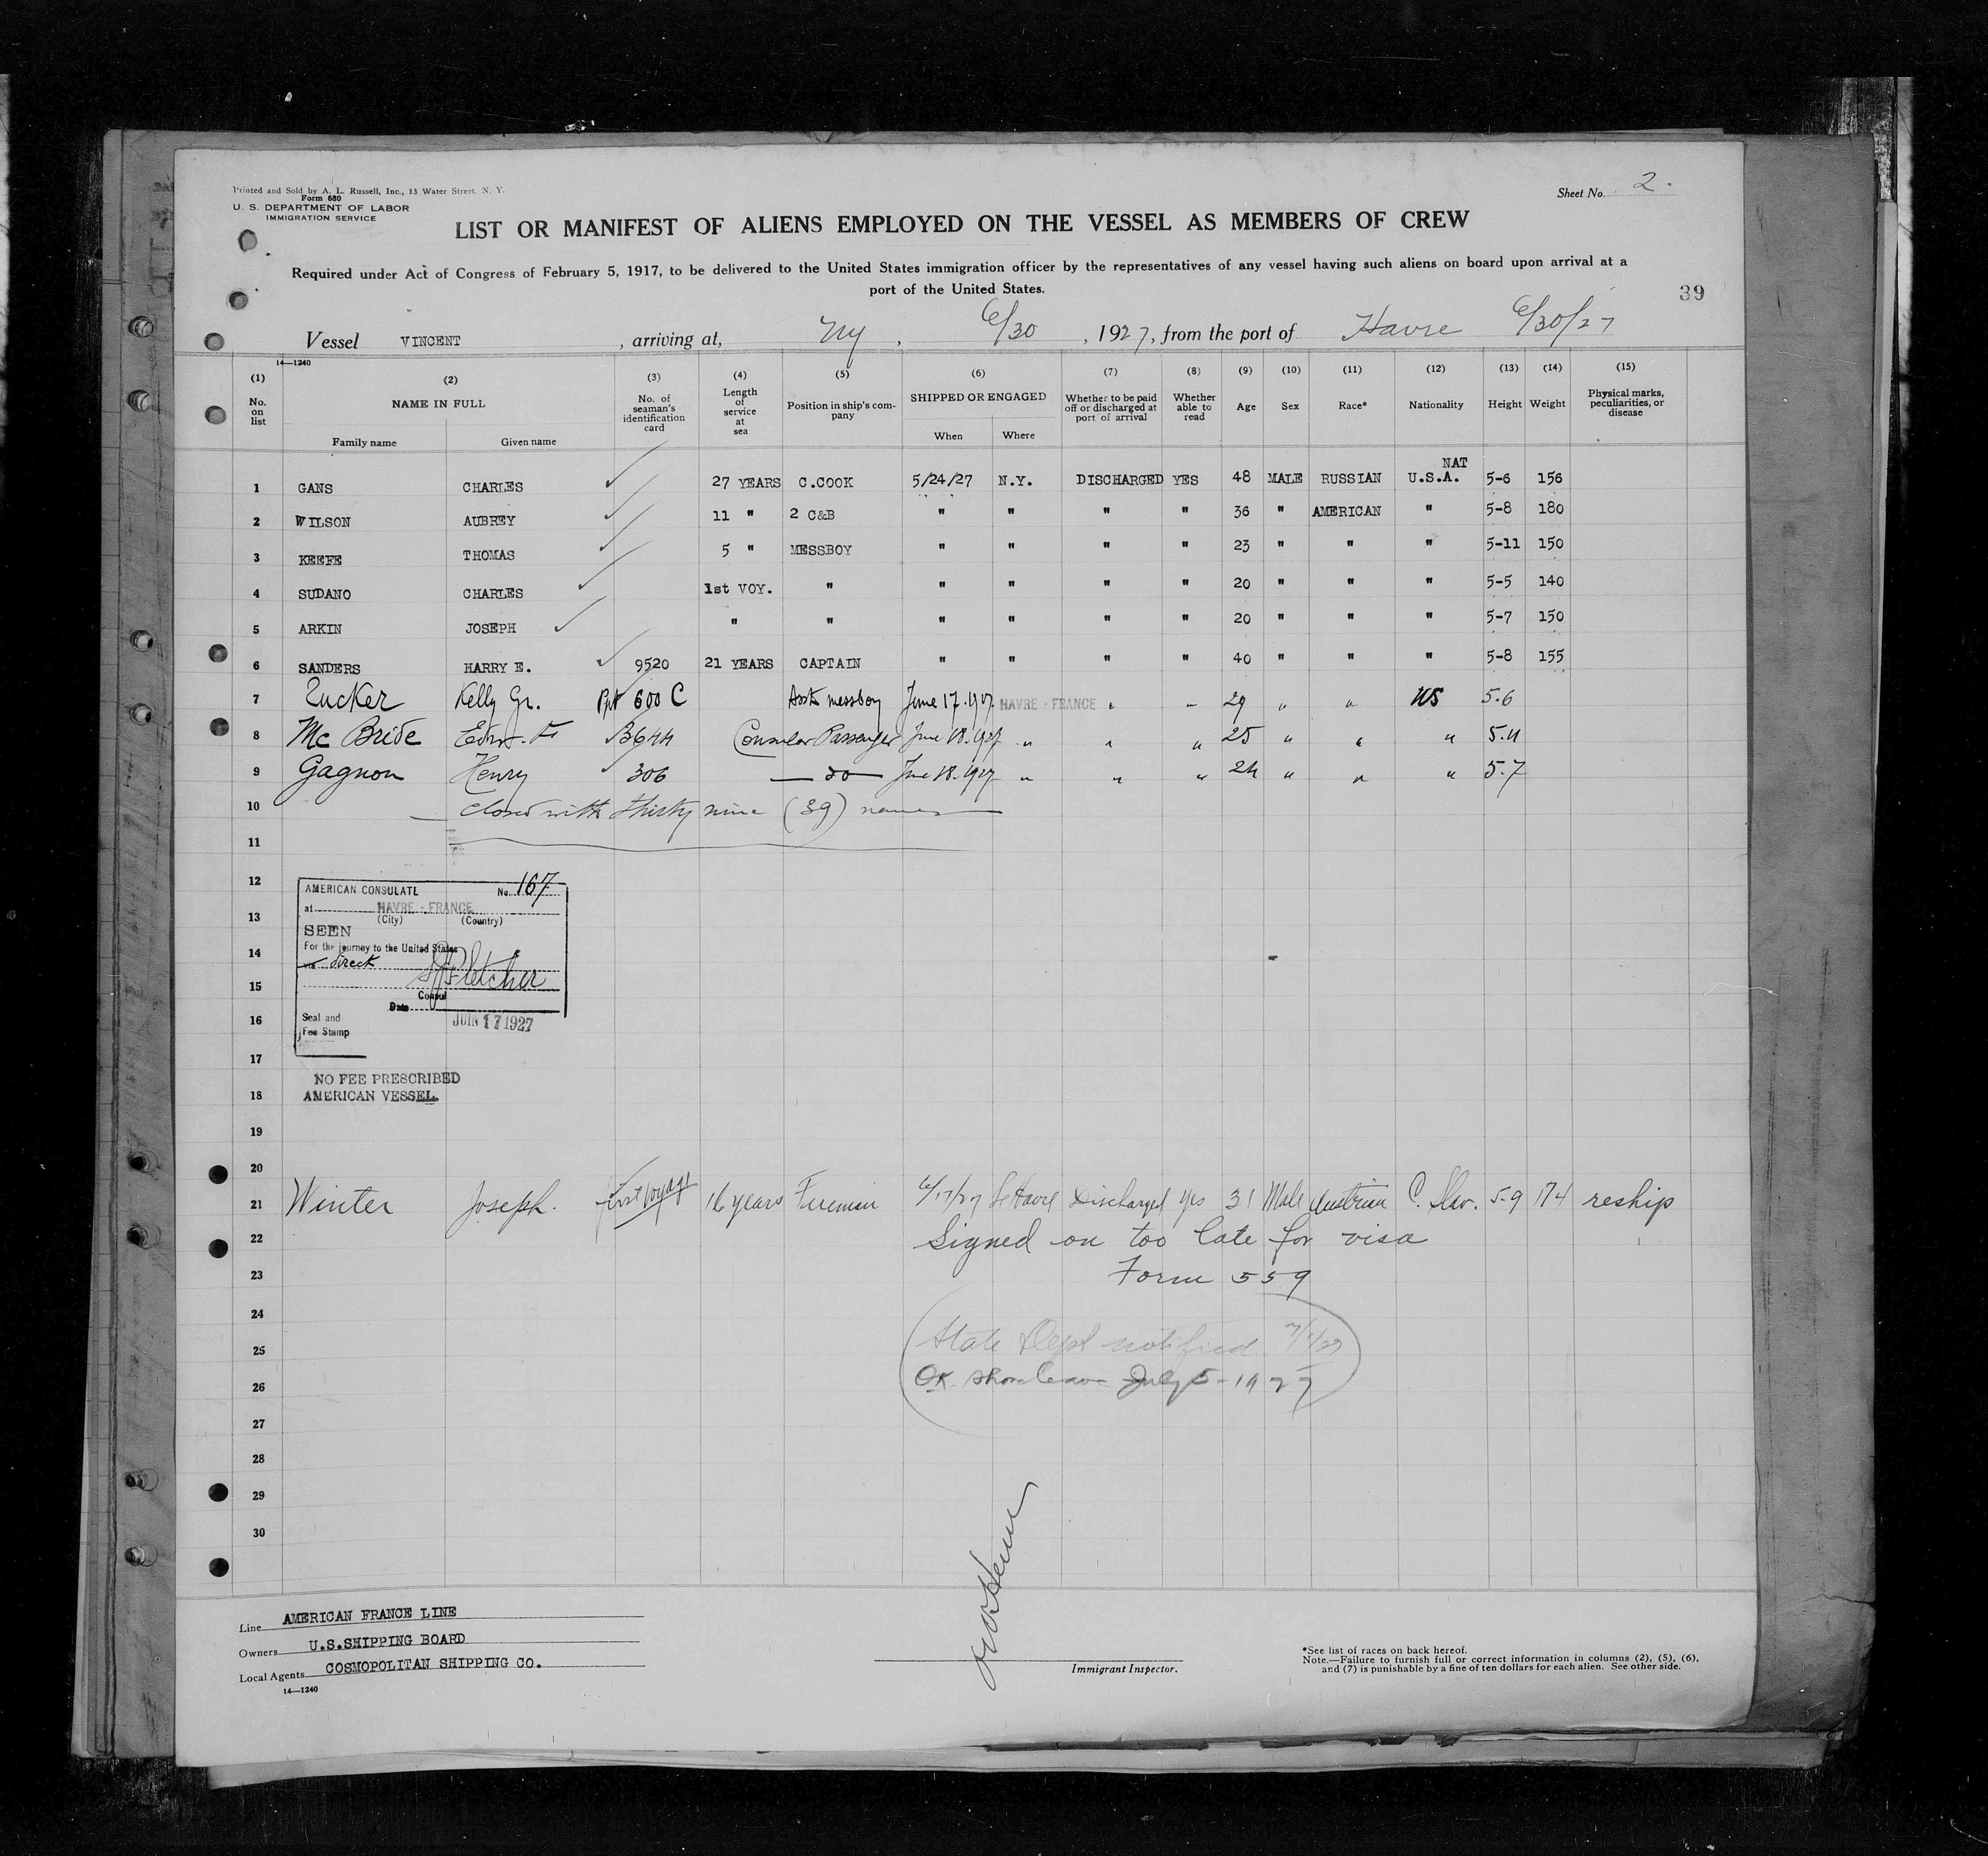 Printed and Sold by A. L. Russell, Inc., 13 Water Street, N. Y.
Form 680
U. S. DEPARTMENT OF LABOR
IMMIGRATION SERVICE
Sheet No. 2.
LIST OR MANIFEST OF ALIENS EMPLOYED ON THE VESSEL AS MEMBERS OF CREW
Required under Act of Congress of February 5, 1917, to be delivered to the United States immigration officer by the representatives of any vessel having such aliens on board upon arrival at a
port of the United States.
39
Vessel VINCENT, arriving at, NY, 6/30, 1927, from the port of Havre 6/30/27
14—1240
(1) (2) (3) (4) (5) (6) (7) (8) (9) (10) (11) (12) (13) (14) (15)
No. on list NAME IN FULL No. of seaman's identification card Length of service at sea Position in ship's company SHIPPED OR ENGAGED Whether to be paid off or discharged at port of arrival Whether able to read Age Sex Race* Nationality Height Weight Physical marks, peculiarities, or disease
Family name Given name When Where
1 GANS CHARLES 27 YEARS C.COOK 5/24/27 N.Y. DISCHARGED YES 48 MALE RUSSIAN NAT U.S.A. 5-6 156
2 WILSON AUBREY 11 " 2 C&B " " " " 36 " AMERICAN " 5-8 180
3 KEEFE THOMAS 5 " MESSBOY " " " " 23 " " " 5-11 150
4 SUDANO CHARLES 1st VOY. " " " " " 20 " " " 5-5 140
5 ARKIN JOSEPH " " " " " " 20 " " " 5-7 150
6 SANDERS HARRY E. 9520 21 YEARS CAPTAIN " " " " 40 " " " 5-8 155
7 Zucker Kelly Gr. Ppt 600 C Asst messboy June 17.1927 HAVRE - FRANCE " " 29 " " US 5.6
8 Mc Bride Edw. F. 3644 Consular Passenger June 18.1927 " " " 25 " " " 5.11
9 Gagnon Henry 306 — do — June 18.1927 " " " 24 " " " 5.7
10 Closed with thirty nine (39) names
11
12
AMERICAN CONSULATE No. 167
13
at HAVRE - FRANCE
(City) (Country)
SEEN
For the journey to the United States
14
via direct
Fletcher
15
Consul
Date
16
Seal and
Fee Stamp
JUIN 17 1927
17
NO FEE PRESCRIBED
18
AMERICAN VESSEL.
19
20
21 Winter Joseph. first voyage 16 years Fireman 6/17/27 Le Havre Discharged yes 31 Male Austrian C. Slav. 5-9 174 reship
22 Signed on too late for visa
23 Form 559
24
25 State Dept notified 7/1/27
26 OK shore leave July 5-1927
27
28
29
30
Line AMERICAN FRANCE LINE
Owners U.S.SHIPPING BOARD
Local Agents COSMOPOLITAN SHIPPING CO.
14—1240
Immigrant Inspector.
*See list of races on back hereof.
Note.—Failure to furnish full or correct information in columns (2), (5), (6),
and (7) is punishable by a fine of ten dollars for each alien. See other side.